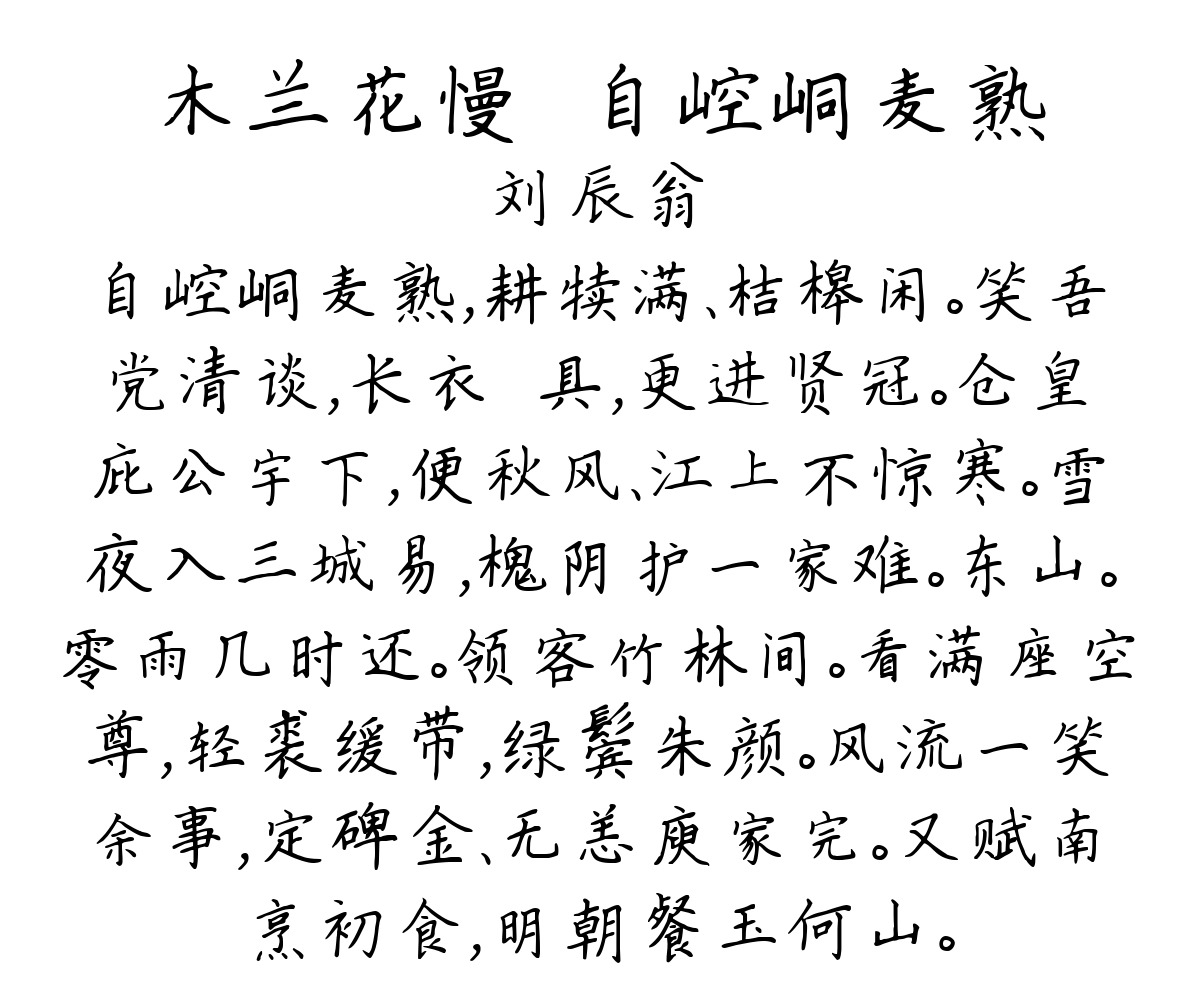 木兰花慢 自崆峒麦熟
刘辰翁
自崆峒麦熟,耕犊满、桔槔闲。笑吾
党清谈,长衣 具,更进贤冠。仓皇
庇公宇下,便秋风、江上不惊寒。雪
夜入三城易,槐阴护一家难。东山。
零雨几时还。领客竹林间。看满座空
尊,轻裘缓带,绿鬓朱颜。风流一笑
余事,定碑金、无恙庾家完。又赋南
烹初食,明朝餐玉何山。